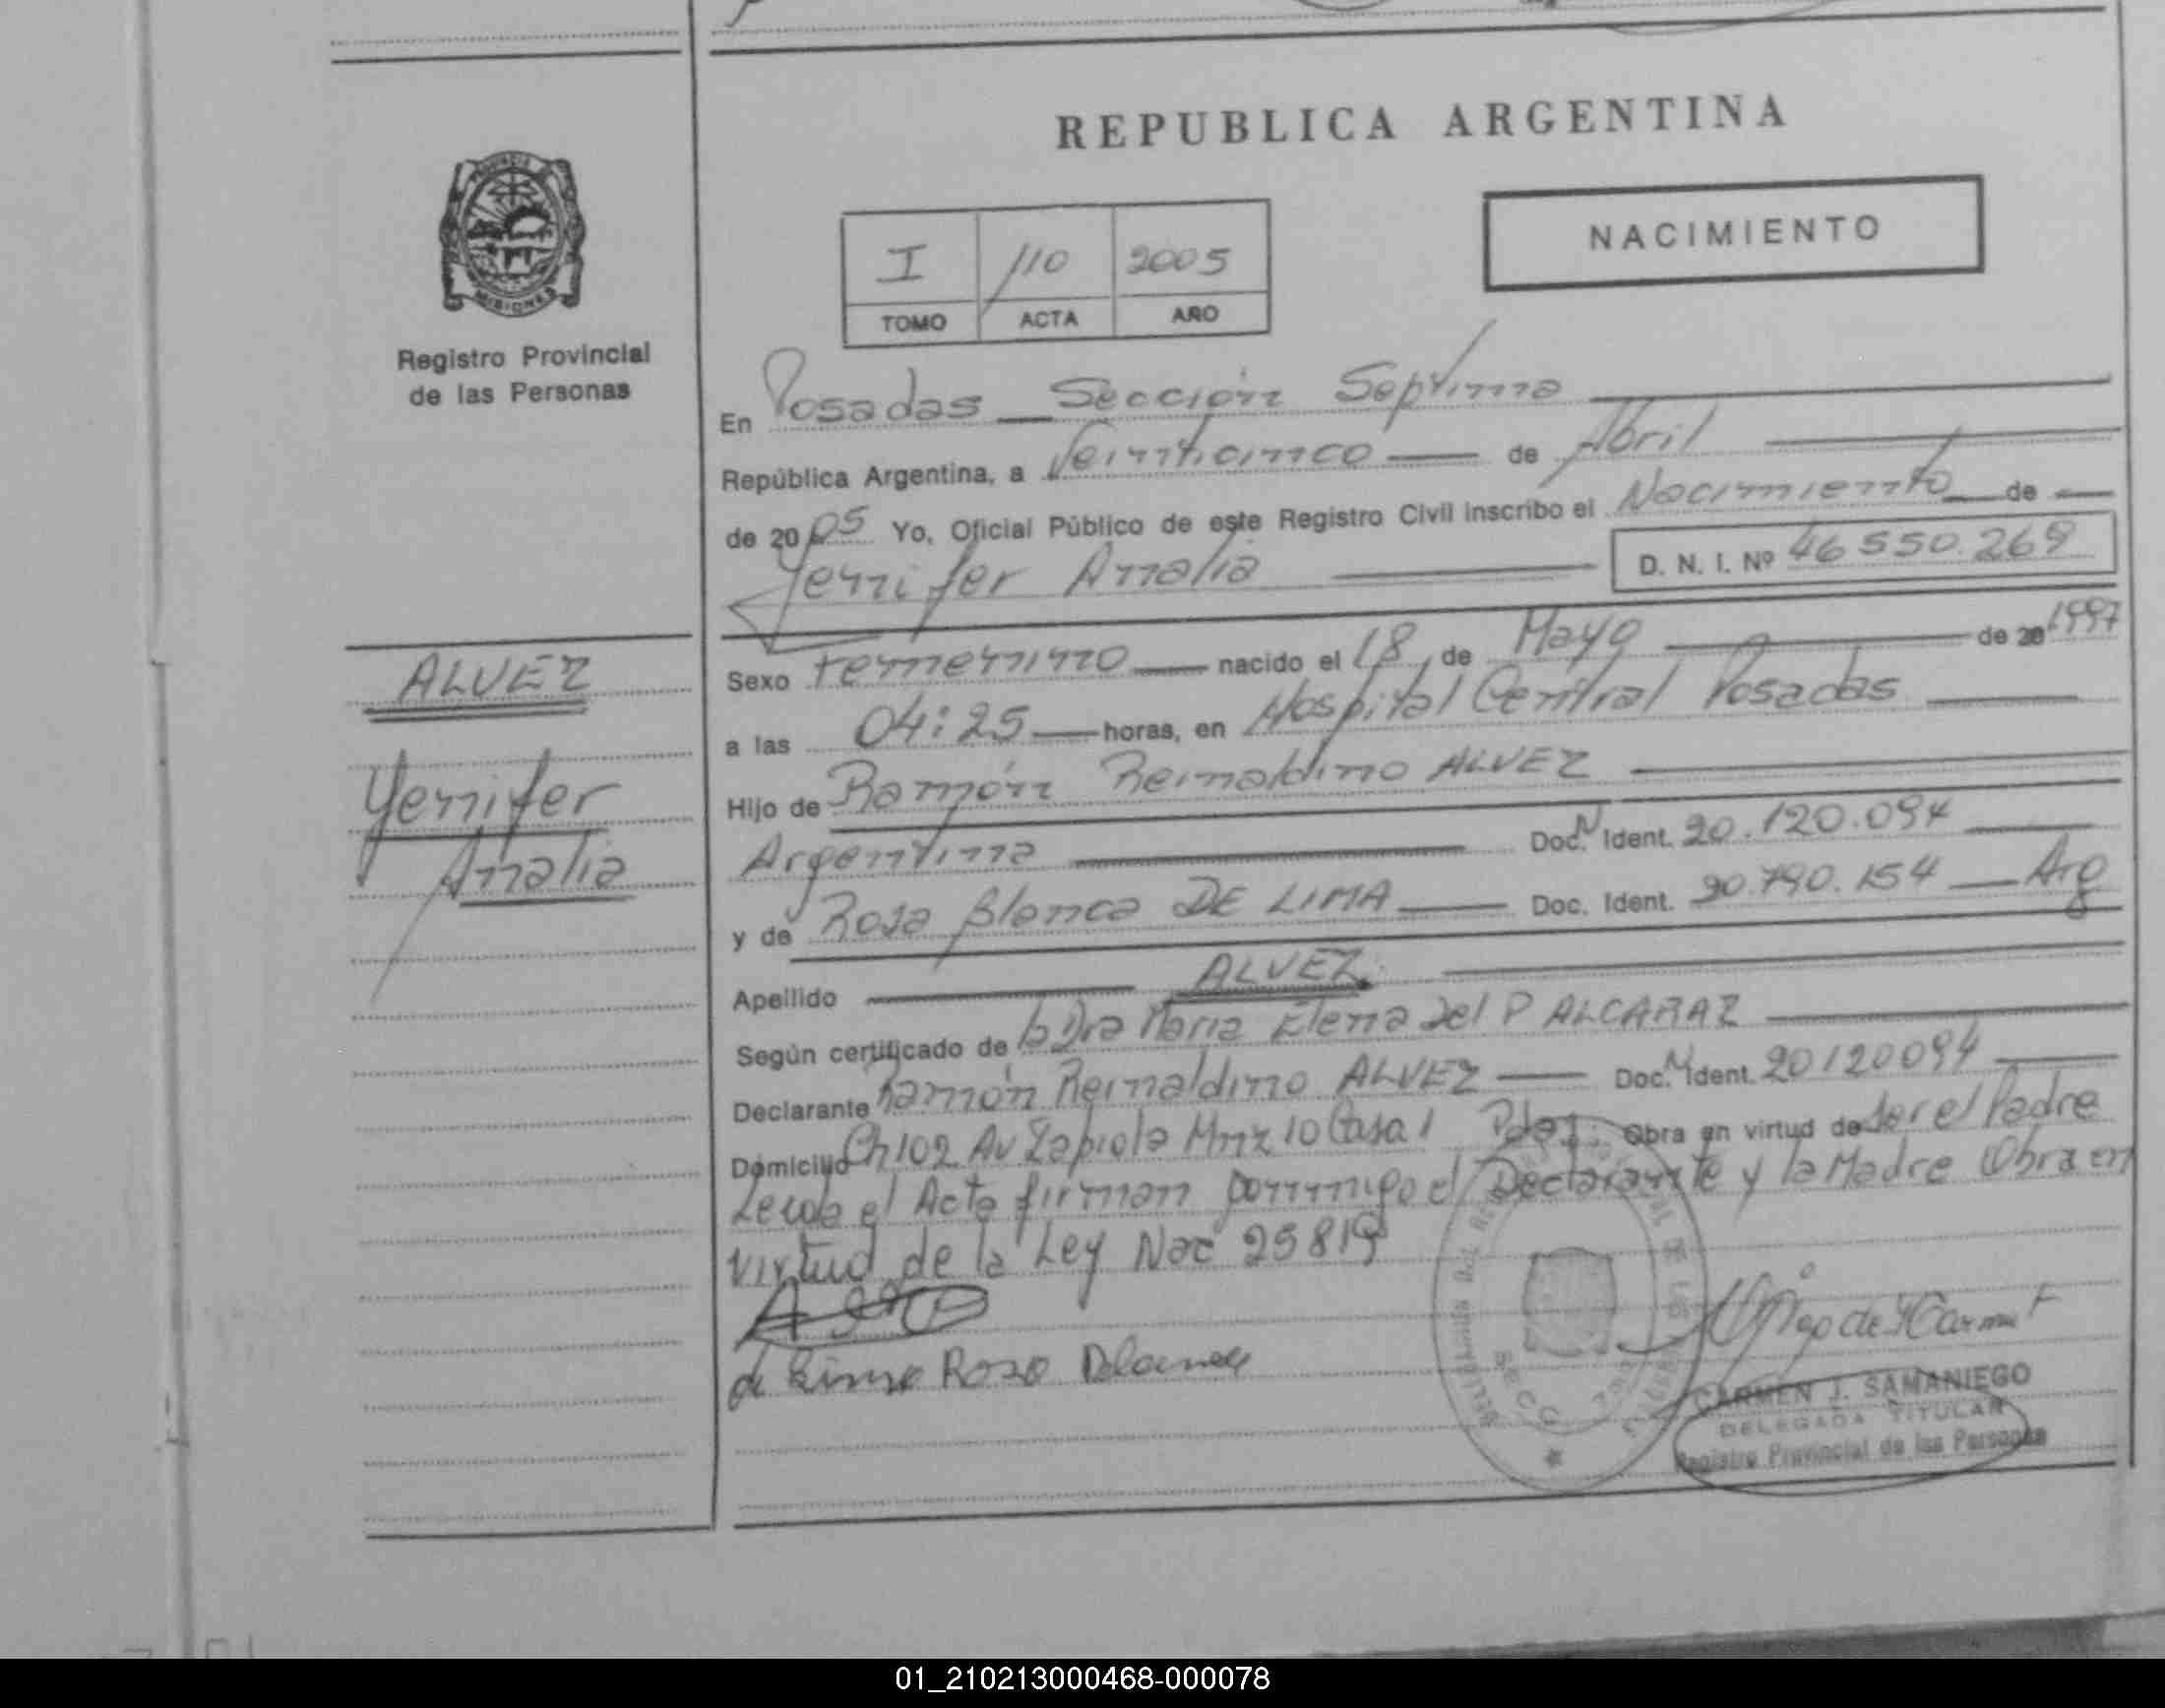 REPUBLICA ARGENTINA
NACIMIENTO
I /110 2005
TOMO ACTA AÑO
PROVINCIA
MISIONES
Registro Provincial
de las Personas
ALVEZ
Yenifer
Analia
En Posadas Sección Septima
República Argentina, a Veinticinco de Abril
de 2005 Yo, Oficial Público de este Registro Civil inscribo el Nacimiento de
Yenifer Analia D. N. I. Nº 46 550.269
Sexo Femenino nacido el 18 de Mayo de 20 1997
a las 04:25 horas, en Hospital Central Posadas
Hijo de Ramón Reinaldino ALVEZ
Argentina Doc. N Ident. 20.120.094
y de Rosa Blanca DE LIMA Doc. Ident. 20.790.154 Arg
Apellido ALVEZ
Según certificado de la Dra Maria Elena Del P ALCARAZ
Declarante Ramón Reinaldino ALVEZ Doc. N Ident. 20120094
Domicilio Ch 102 Av Zapiola Mnz 10 Casa 1 Pdas. Obra en virtud de Ser el Padre
Leida el Acta firman conmigo el Declarante y la Madre Obra en
Virtud de la Ley Nac 25819
de Lima Rosa Blanca
CARMEN J. SAMANIEGO
DELEGADA TITULAR
Registro Provincial de las Personas
01_210213000468-000078